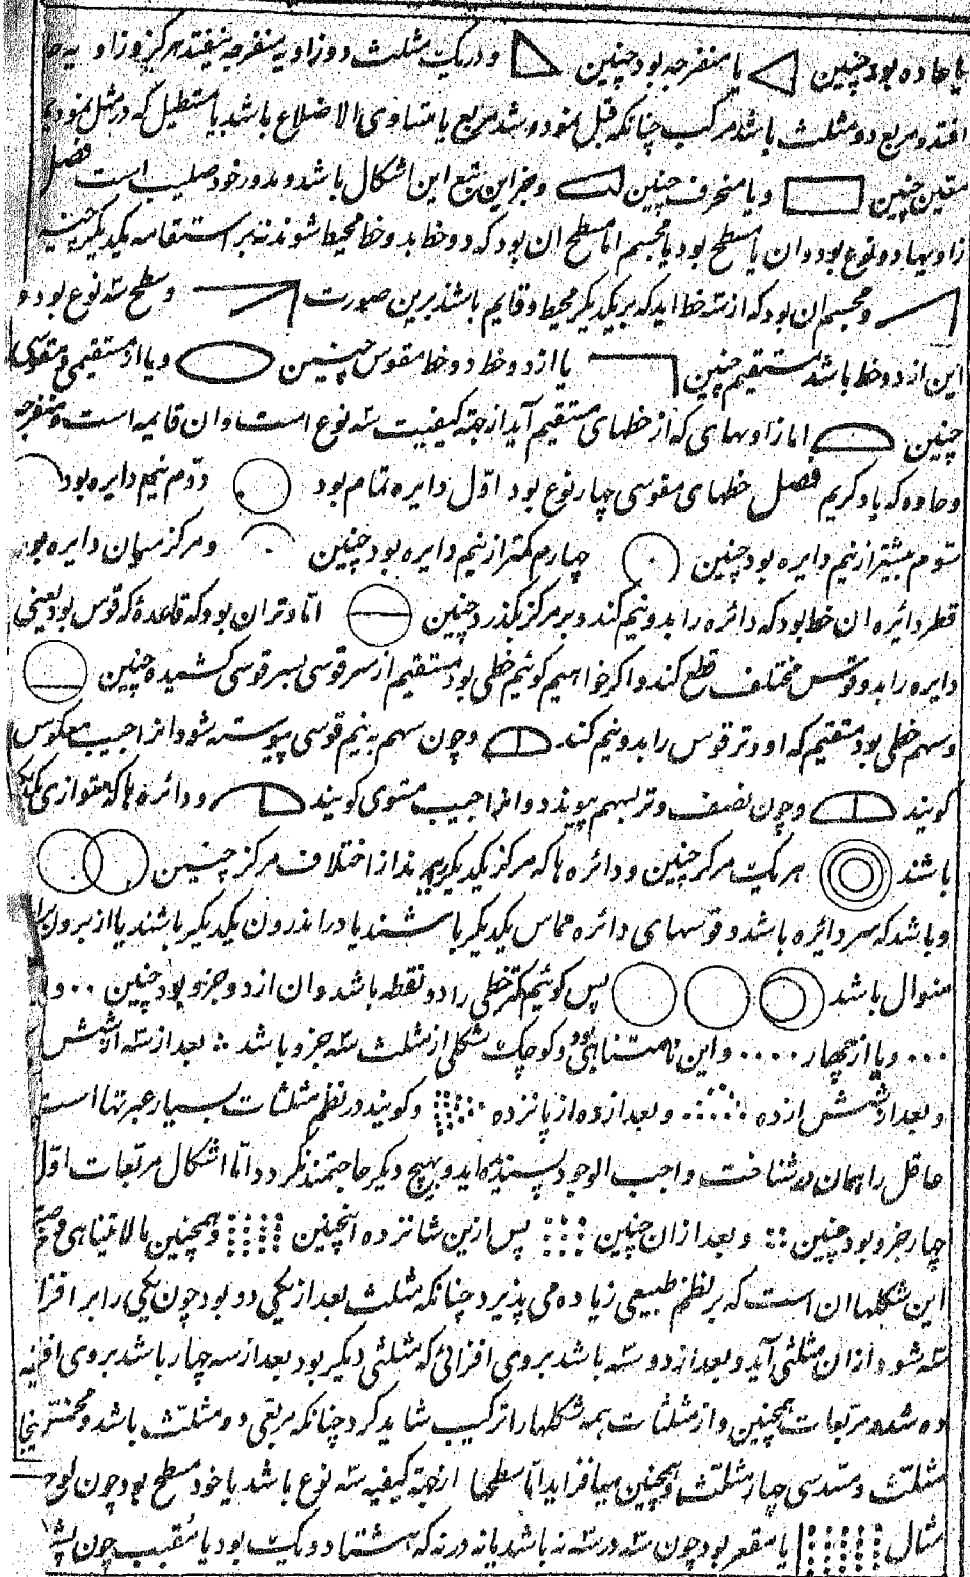 یا حاده بود چنین یا منفرجه بود چنین و در یک مثلث دو زاویه منفرجه نیفتد هرگز و زاویه حا
افتد و مربع دو مثلث باشد مرکب چنانکه قبل نموده شد مربع یا متساوی الاضلاع باشد یا مستطیل که در مثل نمودی
معین چنین و یا منحرف چنین و جز این تبع این اشکال باشد و مدور خود صلیب است فصل
زاویها دو نوع بود و ان یا مسطح بود یا مجسم اما مسطح ان بود که دو خط بدو خط محیط شوند نه بر استقامه یکدیگر چنین
و مجسم ان بود که از سه خط اید که بر یکدیگر محیط و قایم باشد برین صورت و سطح سه نوع بود و
این از دو خط باشد مستقیم چنین یا از دو خط دو خط مقوس چنین و یا از مستقیمی و مقوسی
چنین اما زاویهای که از خطهای مستقیم آید از جهة کیفیت سه نوع است و ان قایمه است و منفرجه
و حاده که یاد کریم فصل خطهای مقوسی چهار نوع بود اوّل دایره تمام بود دوّم نیم دایره بود
سوم بیشتر از نیم دایره بود چنین چهارم کمتر از نیم دایره بود چنین و مرکز میان دایره بود
قطر دائره ان خط بود که دائره را بدو نیم کند و بر مرکز بگذرد چنین امّا وتر ان بود که قاعدهٔ که قوس بود یعنی
دایره را بدو قوس مختلف قطع کند و اکر خواهیم کوئیم خطی بود مستقیم از سر قوسی بسر قوسی کشیده چنین
و سهم خطی بود مستقیم که او وتر قوس را بدو نیم کند و چون سهم به نیم قوسی پیوسته شود انرا جیب معکوس
کویند و چون نصف وتر بسهم پیوندد و انرا جیب مستوی کویند و دائره ها که متوازی یکدیگر
باشند هر یک مرکز چنین و دائره ها که مرکز یکدیگر از اختلاف مرکز چنین
و باشد که سر دائره باشد و قوسهای دائره مماس یکدیگر باشند یا در اندرون یکدیگر باشند یا از برون
منوال باشد پس کوئیم کمتر خطی را دو نقطه باشد و ان از دو جزو بود چنین .. و
... و یا از چهار .... و این نامتناهی بود و کوچک شکلی از مثلث سه جزو باشد بعد از سه از شش
و بعد از شش از ده و بعد از ده از پانزده و کویند در نظم مثلثات بسیار عبرتها است
عاقل را همان در شناخت واجب الوجود پسندیده اید و بهیچ دیگر حاجتمند نگردد امّا اشکال مربعات اوّل
چار جزو بود چنین و بعد از ان چنین پس ازین شانزده اینچنین و همچنین بالا تناهی
این شکلها ان است که بر نظم طبیعی زیاده می پذیرد چنانکه مثلث بعد از یکی دو بود چون یکی را بر افزا
سه شود و از ان مثلثی آید و بعد از دو سه باشد بر وی افزائی که مثلثی دیگر بود بعد از سه چهار باشد بر وی افزا
ده شده مربعات همچنین و از مثلثات همه شکلها را ترکیب شاید کرد چنانکه مربعی دو مثلث باشد و مخمس
مثلث و مسدسی چار مثلث و همچنین میافزاید امّا سطحها از جهة کیفیه سه نوع باشد یا خود مسطح بود چون لوح
مثال یا مقعر بود چون یا مقبب چون